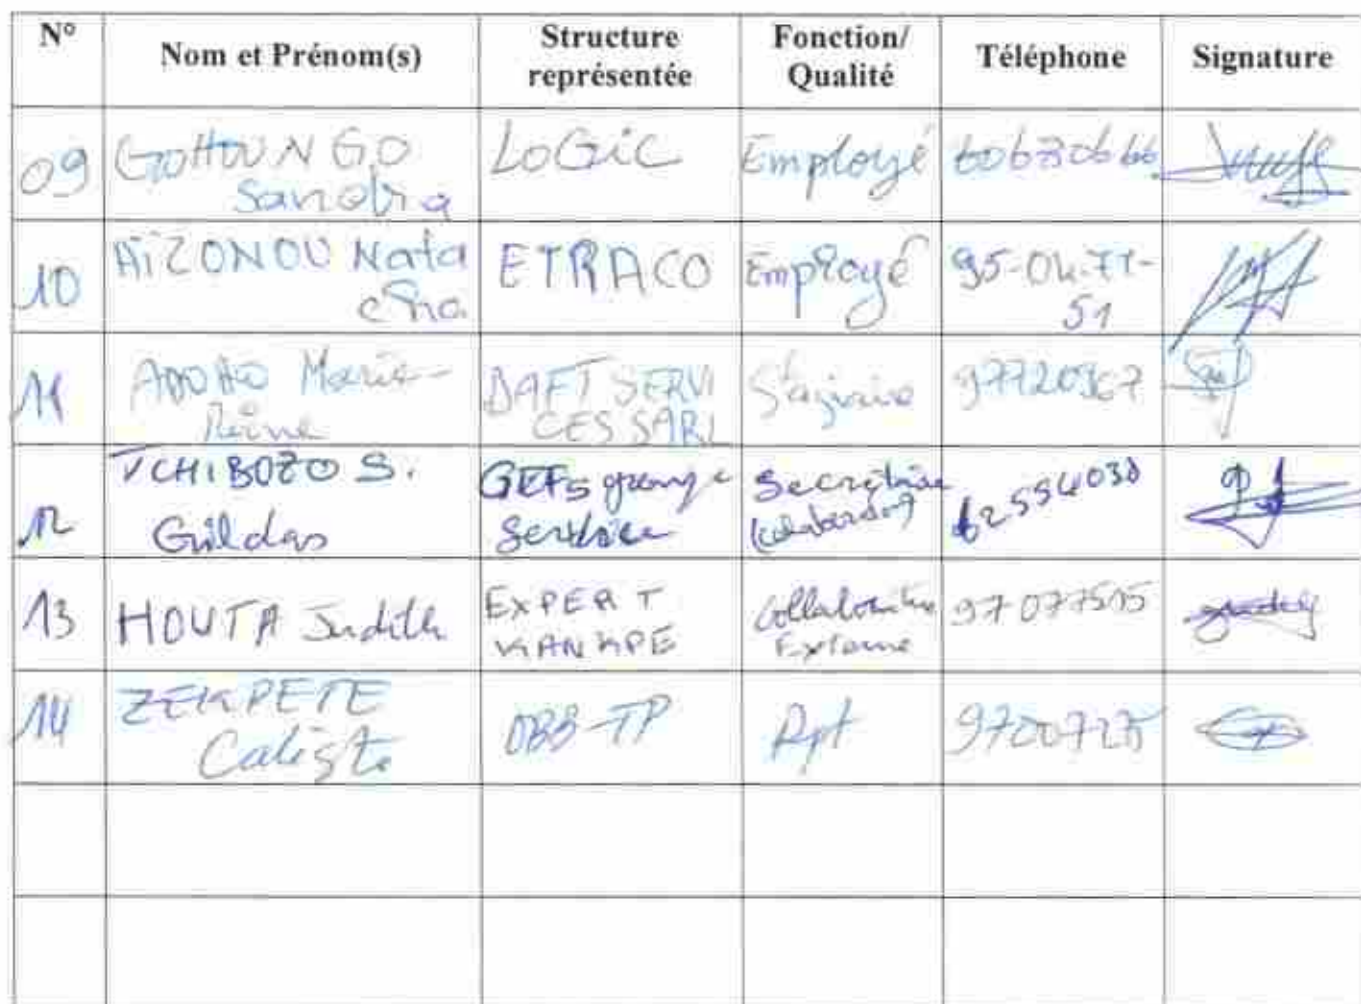 N° Nom et Prénom(s) Structure représentée Fonction/ Qualité Téléphone Signature
09 GOHOUNGO Sandra LOGIC Employé 60670666
10 AÏZONOU Natacha ETRACO Employé 95-04-71-51
11 ADOHO Marie-Reine DAFT SERVICES SARL Stagiaire 97720367
12 TCHIBOZO S. Gildas Service 62554030
13 HOUTA Judith EXPERT KANKPE Collaboratrice Externe 97077515
14 ZEKPETE Caliste OBB-TP Rpt